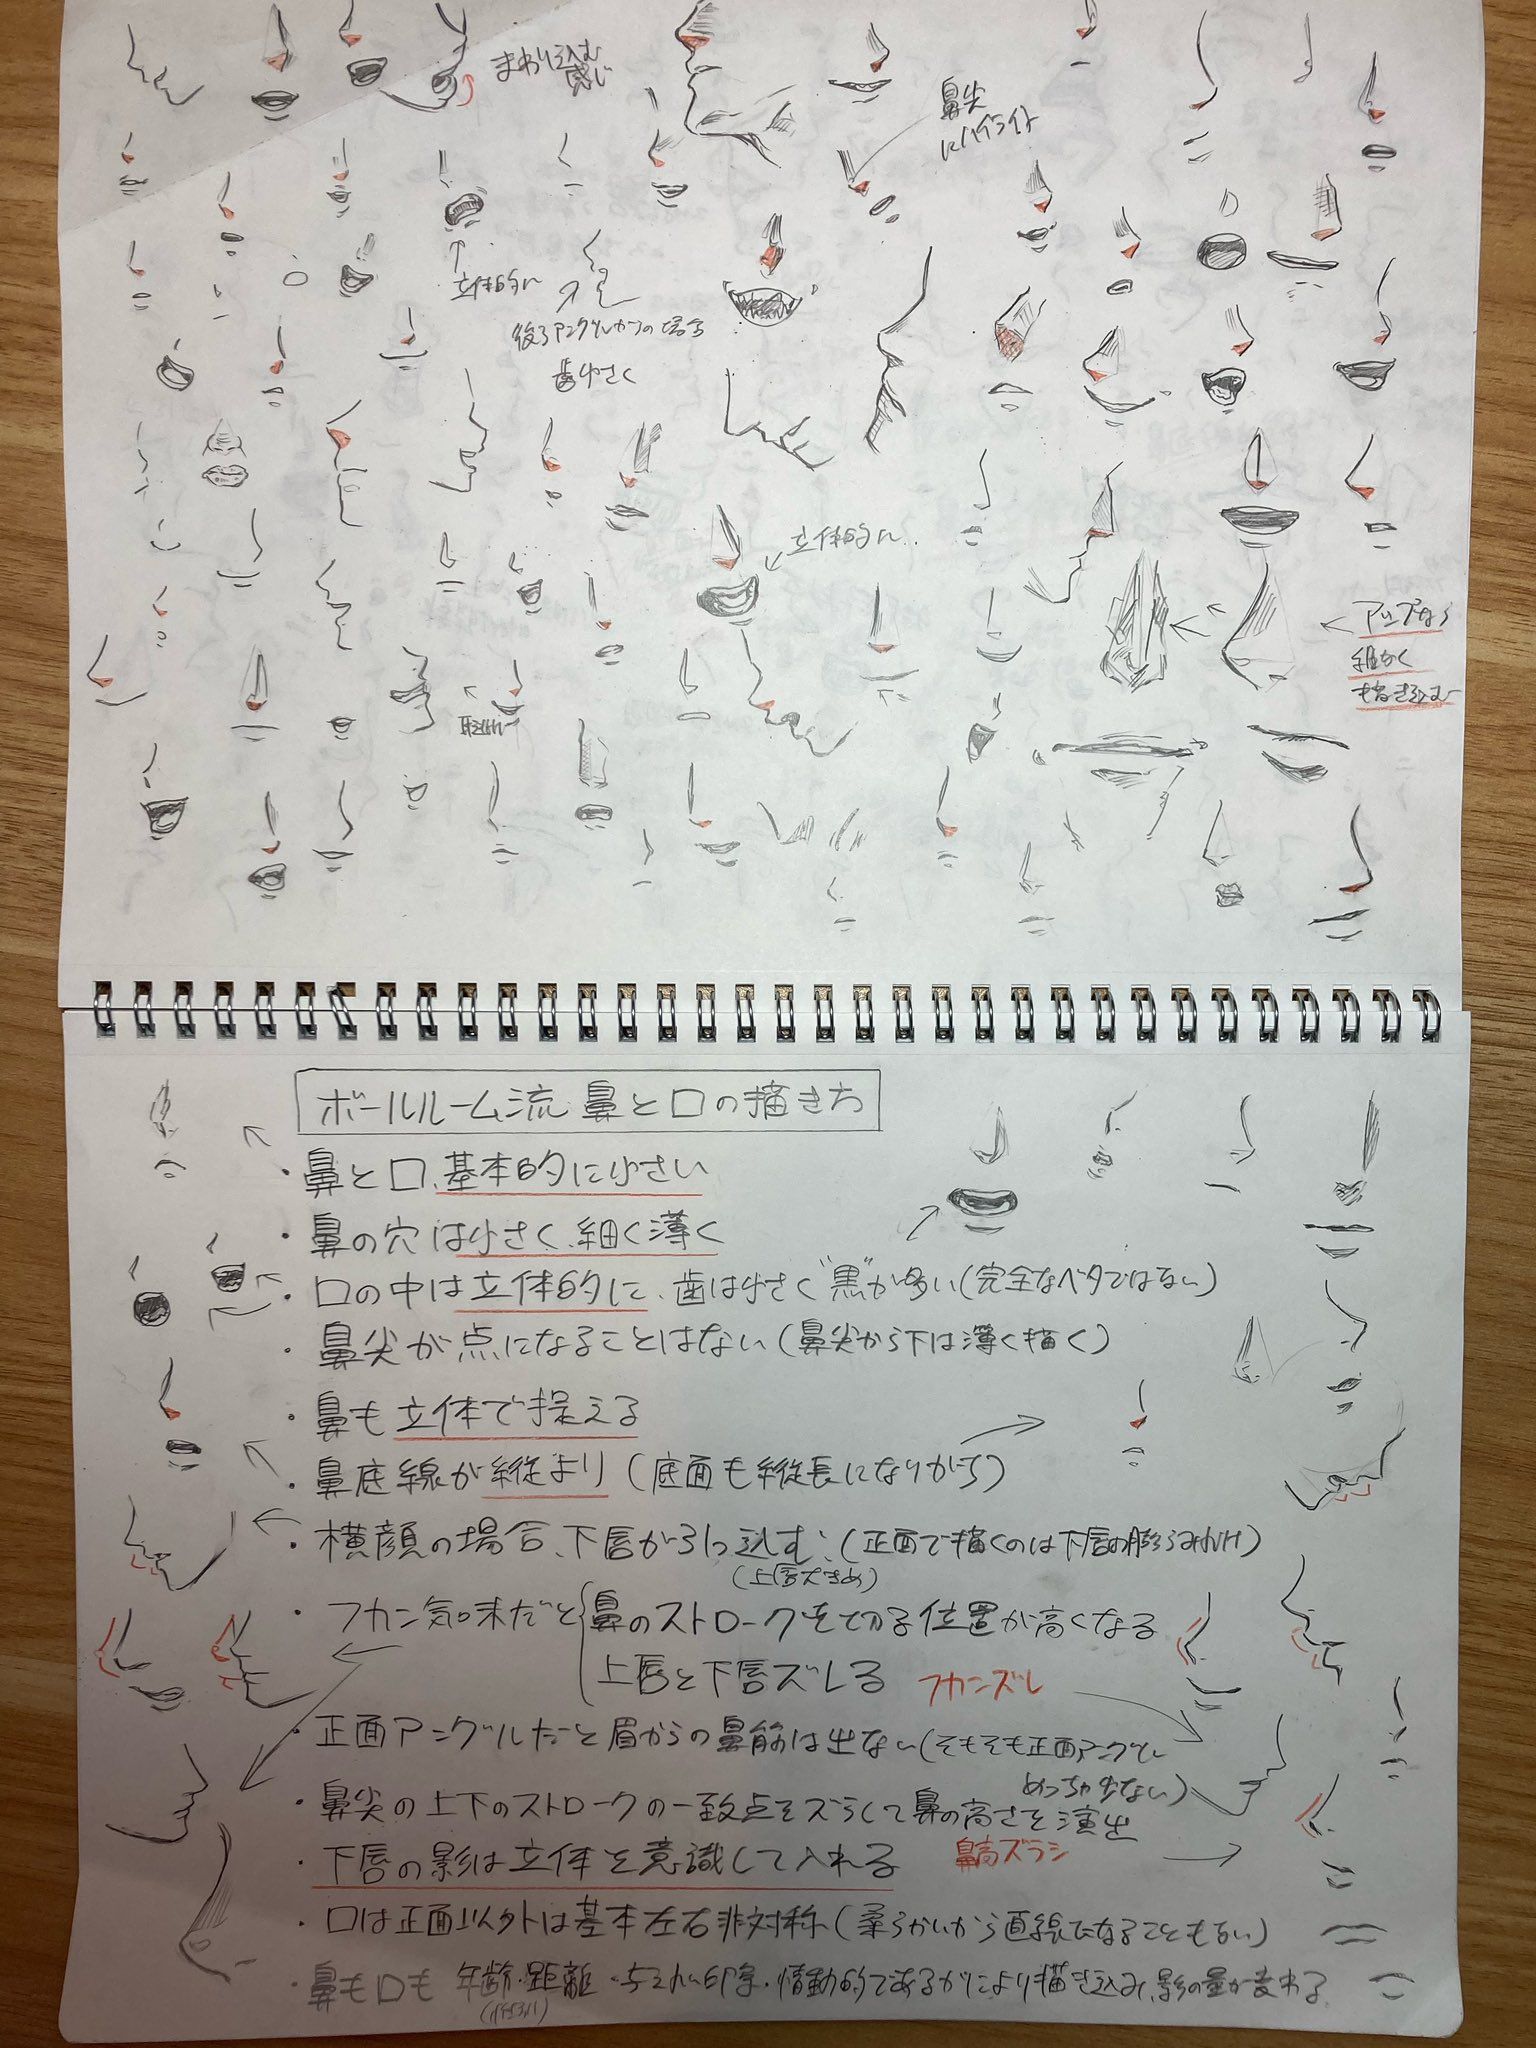 まわり込む
感じ
鼻尖
にハイライト
立体的に
後ろアングルからの場合
歯小さく
立体的に
アップなら
細かく
描き込む
ボールルーム流 鼻と口の描き方
・鼻と口、基本的に小さい
・鼻の穴は小さく、細く薄く
・口の中は立体的に、歯は小さく"黒"が多い(完全なベタではない)
・鼻尖が点になることはない(鼻尖から下は薄く描く)
・鼻も立体で捉える
・鼻底線が縦より(底面も縦長になりがち)
・横顔の場合、下唇が引っ込む、(正面で描くのは下唇の膨らみだけ)
(上唇大きめ)
・フカン気味だと 鼻のストロークを切る位置が高くなる
上唇と下唇ズレる フカンズレ
・正面アングルだと眉からの鼻筋は出ない(そもそも正面アングル
めっちゃ少ない)
・鼻尖の上下のストロークの一致点をズラして鼻の高さを演出
鼻高ズラシ
・下唇の影は立体を意識して入れる
・口は正面以外は基本左右非対称(柔らかいから直線になることもない)
・鼻も口も 年齢・距離・与えたい印象・情動的であるかにより描き込み、影の量が変わる